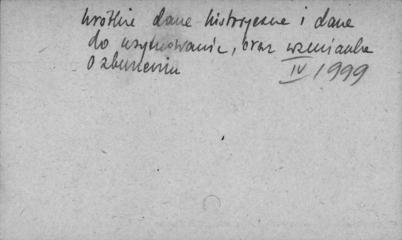 krótkie dane historyczne i dane
do usytuowanie, oraz wzmianka
o zburzeniu IV 1999